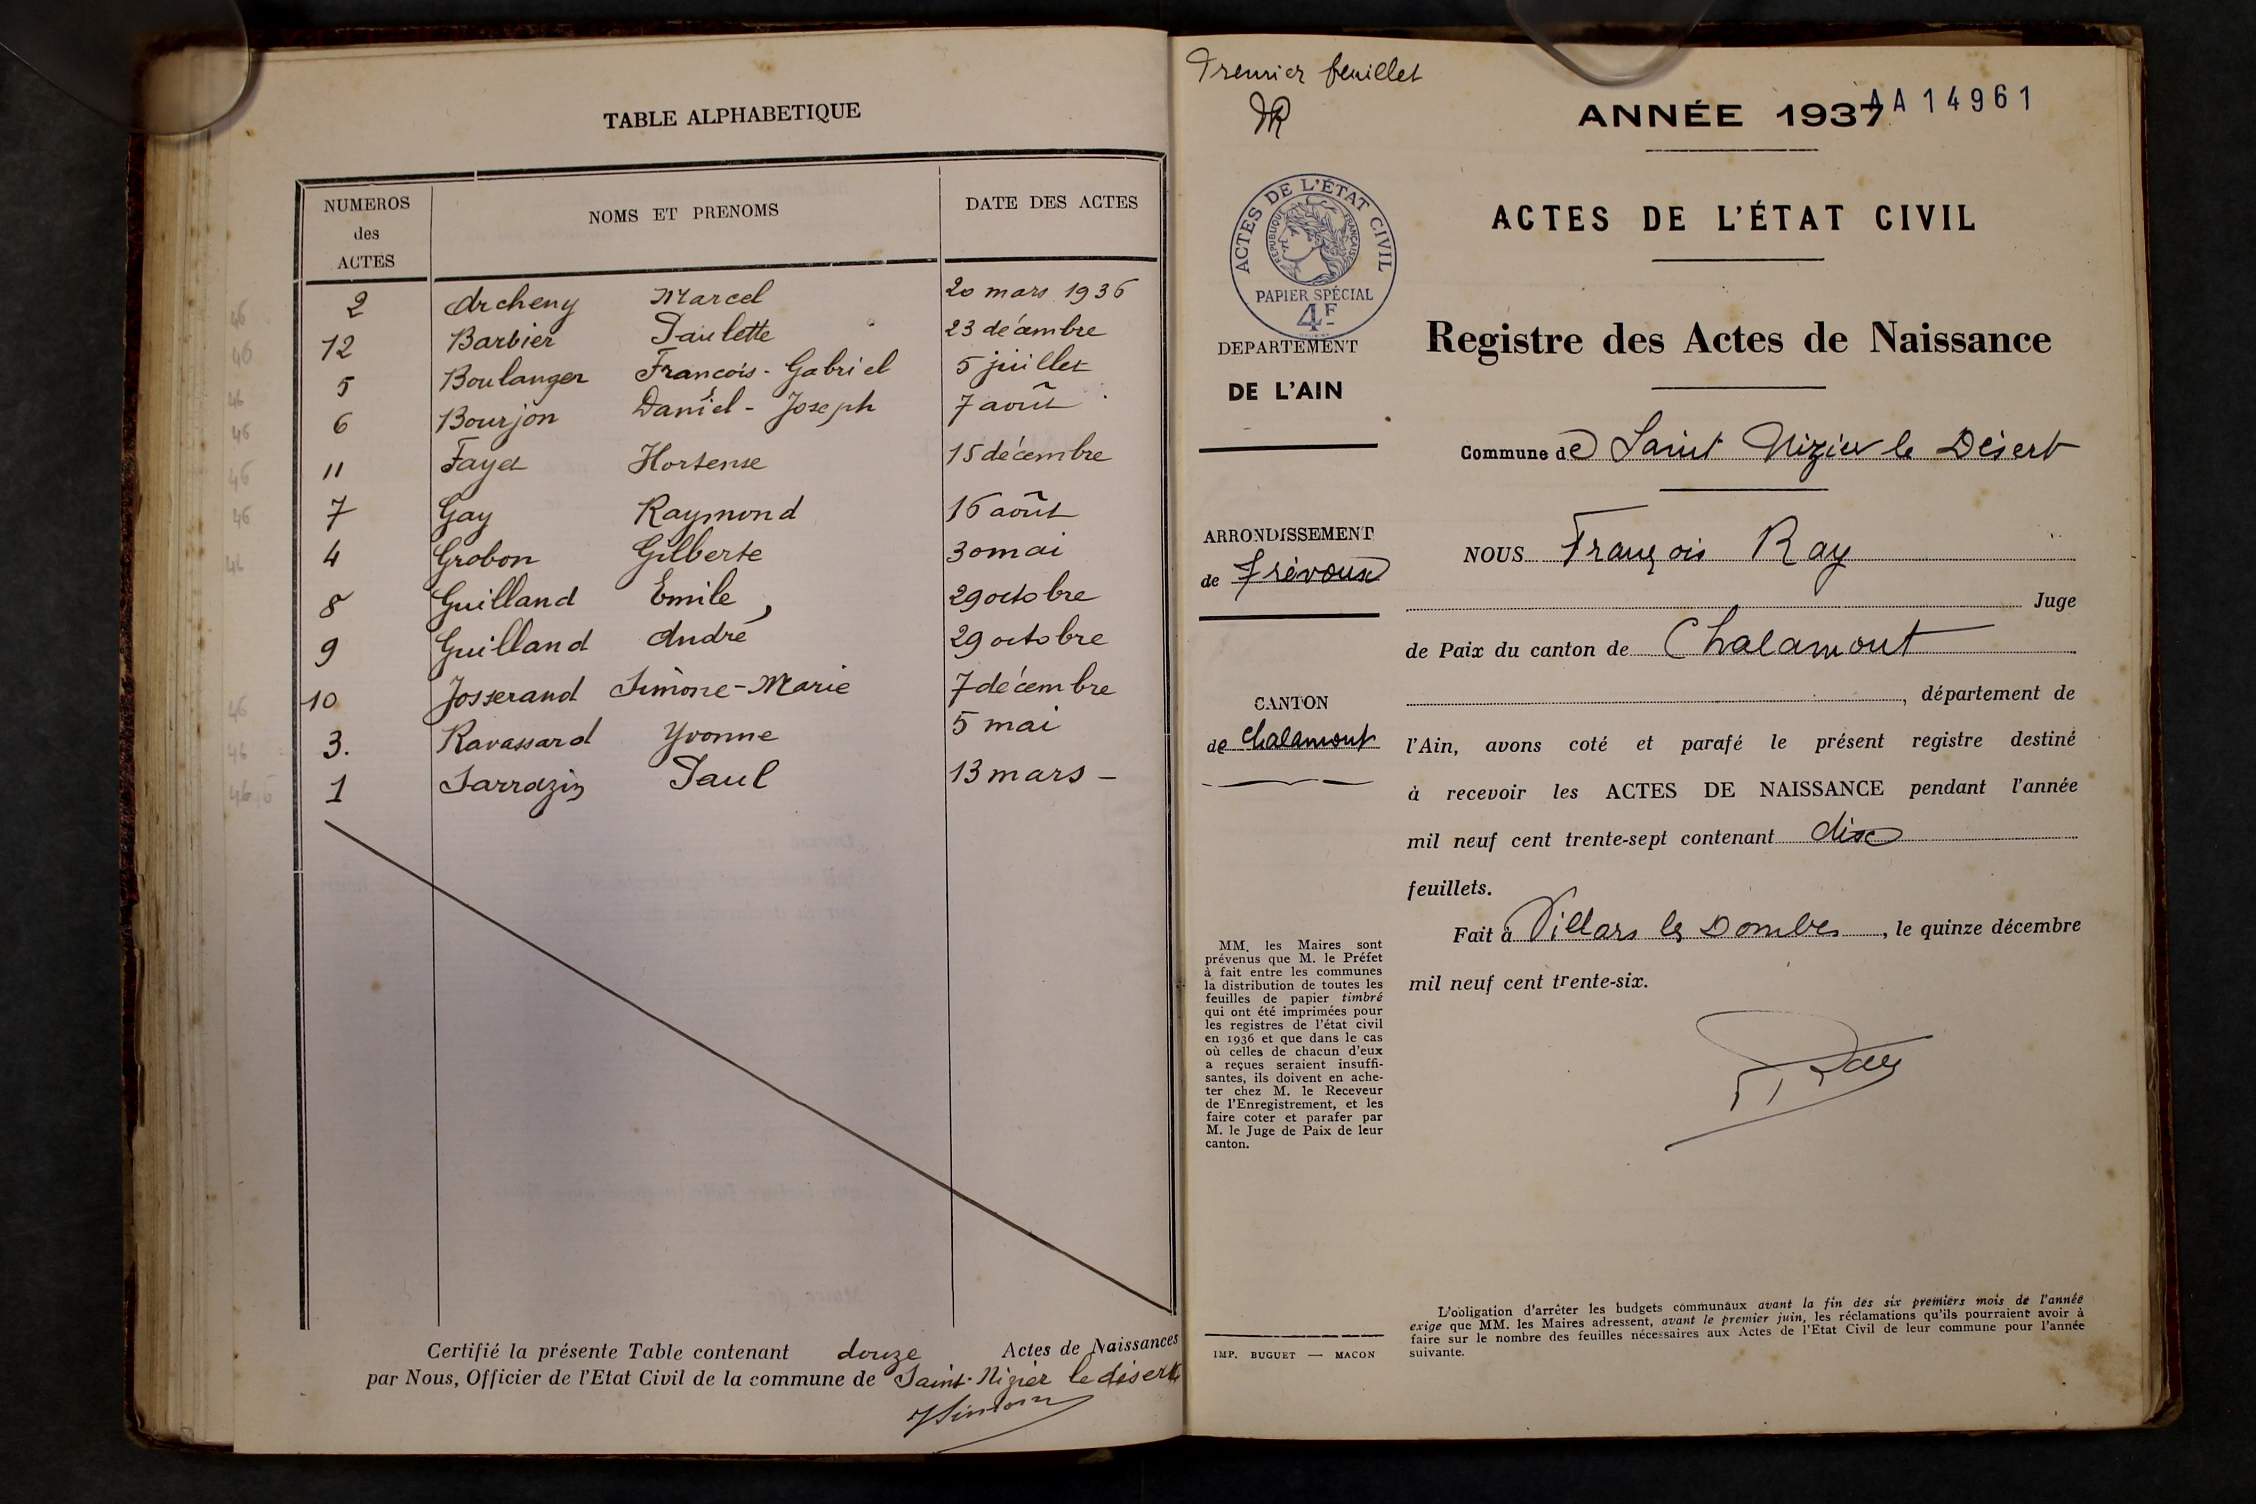 TABLE ALPHABETIQUE
NUMEROS
des
ACTES
NOMS ET PRENOMS
DATE DES ACTES
2 Archeny Marcel 20 mars 1936
12 Barbier Paulette 23 décembre
5 Boulanger Francois-Gabriel 5 juillet
6 Bourjon Daniel-Joseph 7 août
11 Fayet Hortense 15 décembre
7 Gay Raymond 16 août
4 Grobon Gilberte 30 mai
8 Guilland Emile 29 octobre
9 Guilland André 29 octobre
10 Josserand Simone-Marie 7 décembre
3. Ravassard Yvonne 5 mai
1 Sarrazin Paul 13 mars –
Certifié la présente Table contenant douze Actes de Naissances
par Nous, Officier de l'Etat Civil de la commune de Saint-Nizier le désert
Premier feuillet
ANNÉE 1937
AA14961
ACTES DE L'ÉTAT CIVIL
ACTES DE L'ÉTAT CIVIL
RÉPUBLIQUE FRANÇAISE
PAPIER SPÉCIAL
4F
Registre des Actes de Naissance
DEPARTEMENT
DE L'AIN
Commune de Saint Nizier le Désert
ARRONDISSEMENT
de Trévoux
CANTON
de Chalamont
NOUS François Ray
Juge
de Paix du canton de Chalamont
, département de
l'Ain, avons coté et parafé le présent registre destiné
à recevoir les ACTES DE NAISSANCE pendant l'année
mil neuf cent trente-sept contenant dix
feuillets.
Fait à Villars les Dombes, le quinze décembre
mil neuf cent trente-six.
Ray
MM. les Maires sont
prévenus que M. le Préfet
à fait entre les communes
la distribution de toutes les
feuilles de papier timbré
qui ont été imprimées pour
les registres de l'état civil
en 1936 et que dans le cas
où celles de chacun d'eux
a reçues seraient insuffi-
santes, ils doivent en ache-
ter chez M. le Receveur
de l'Enregistrement, et les
faire coter et parafer par
M. le Juge de Paix de leur
canton.
IMP. BUGUET — MACON
L'obligation d'arrêter les budgets communaux avant la fin des six premiers mois de l'année
exige que MM. les Maires adressent, avant le premier juin, les réclamations qu'ils pourraient avoir à
faire sur le nombre des feuilles nécessaires aux Actes de l'Etat Civil de leur commune pour l'année
suivante.